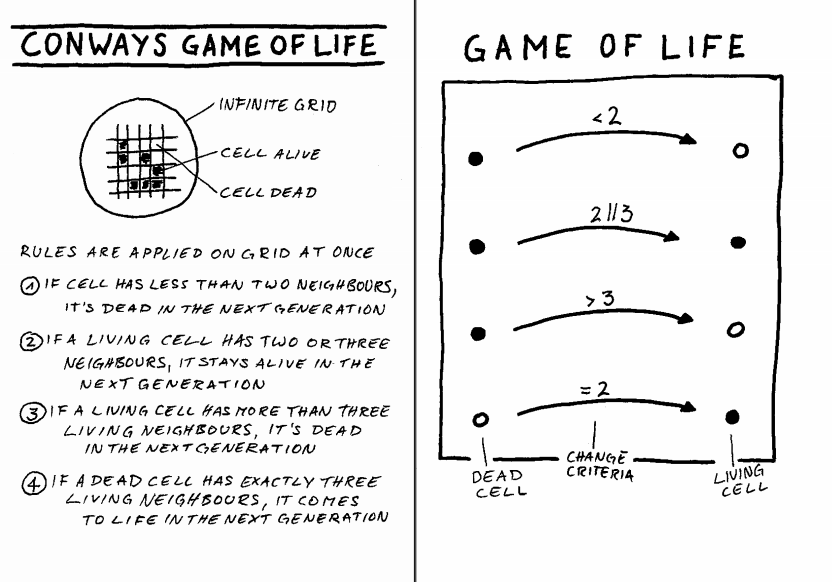 CONWAYS GAME OF LIFE
INFINITE GRID
CELL ALIVE
CELL DEAD
RULES ARE APPLIED ON GRID AT ONCE
1 IF CELL HAS LESS THAN TWO NEIGHBOURS,
IT'S DEAD IN THE NEXT GENERATION
2 IF A LIVING CELL HAS TWO OR THREE
NEIGHBOURS, IT STAYS ALIVE IN THE
NEXT GENERATION
3 IF A LIVING CELL HAS MORE THAN THREE
LIVING NEIGHBOURS, IT'S DEAD
IN THE NEXT GENERATION
4 IF A DEAD CELL HAS EXACTLY THREE
LIVING NEIGHBOURS, IT COMES
TO LIFE IN THE NEXT GENERATION
GAME OF LIFE
< 2
2 || 3
> 3
= 2
DEAD
CELL
CHANGE
CRITERIA
LIVING
CELL